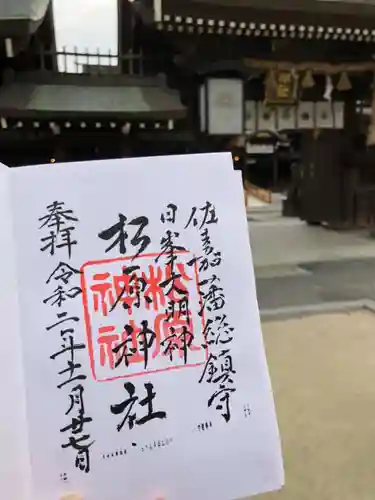 佐嘉藩総鎮守
日峯大明神
松原神社
松原
神社
奉拝 令和二年十二月廿七日